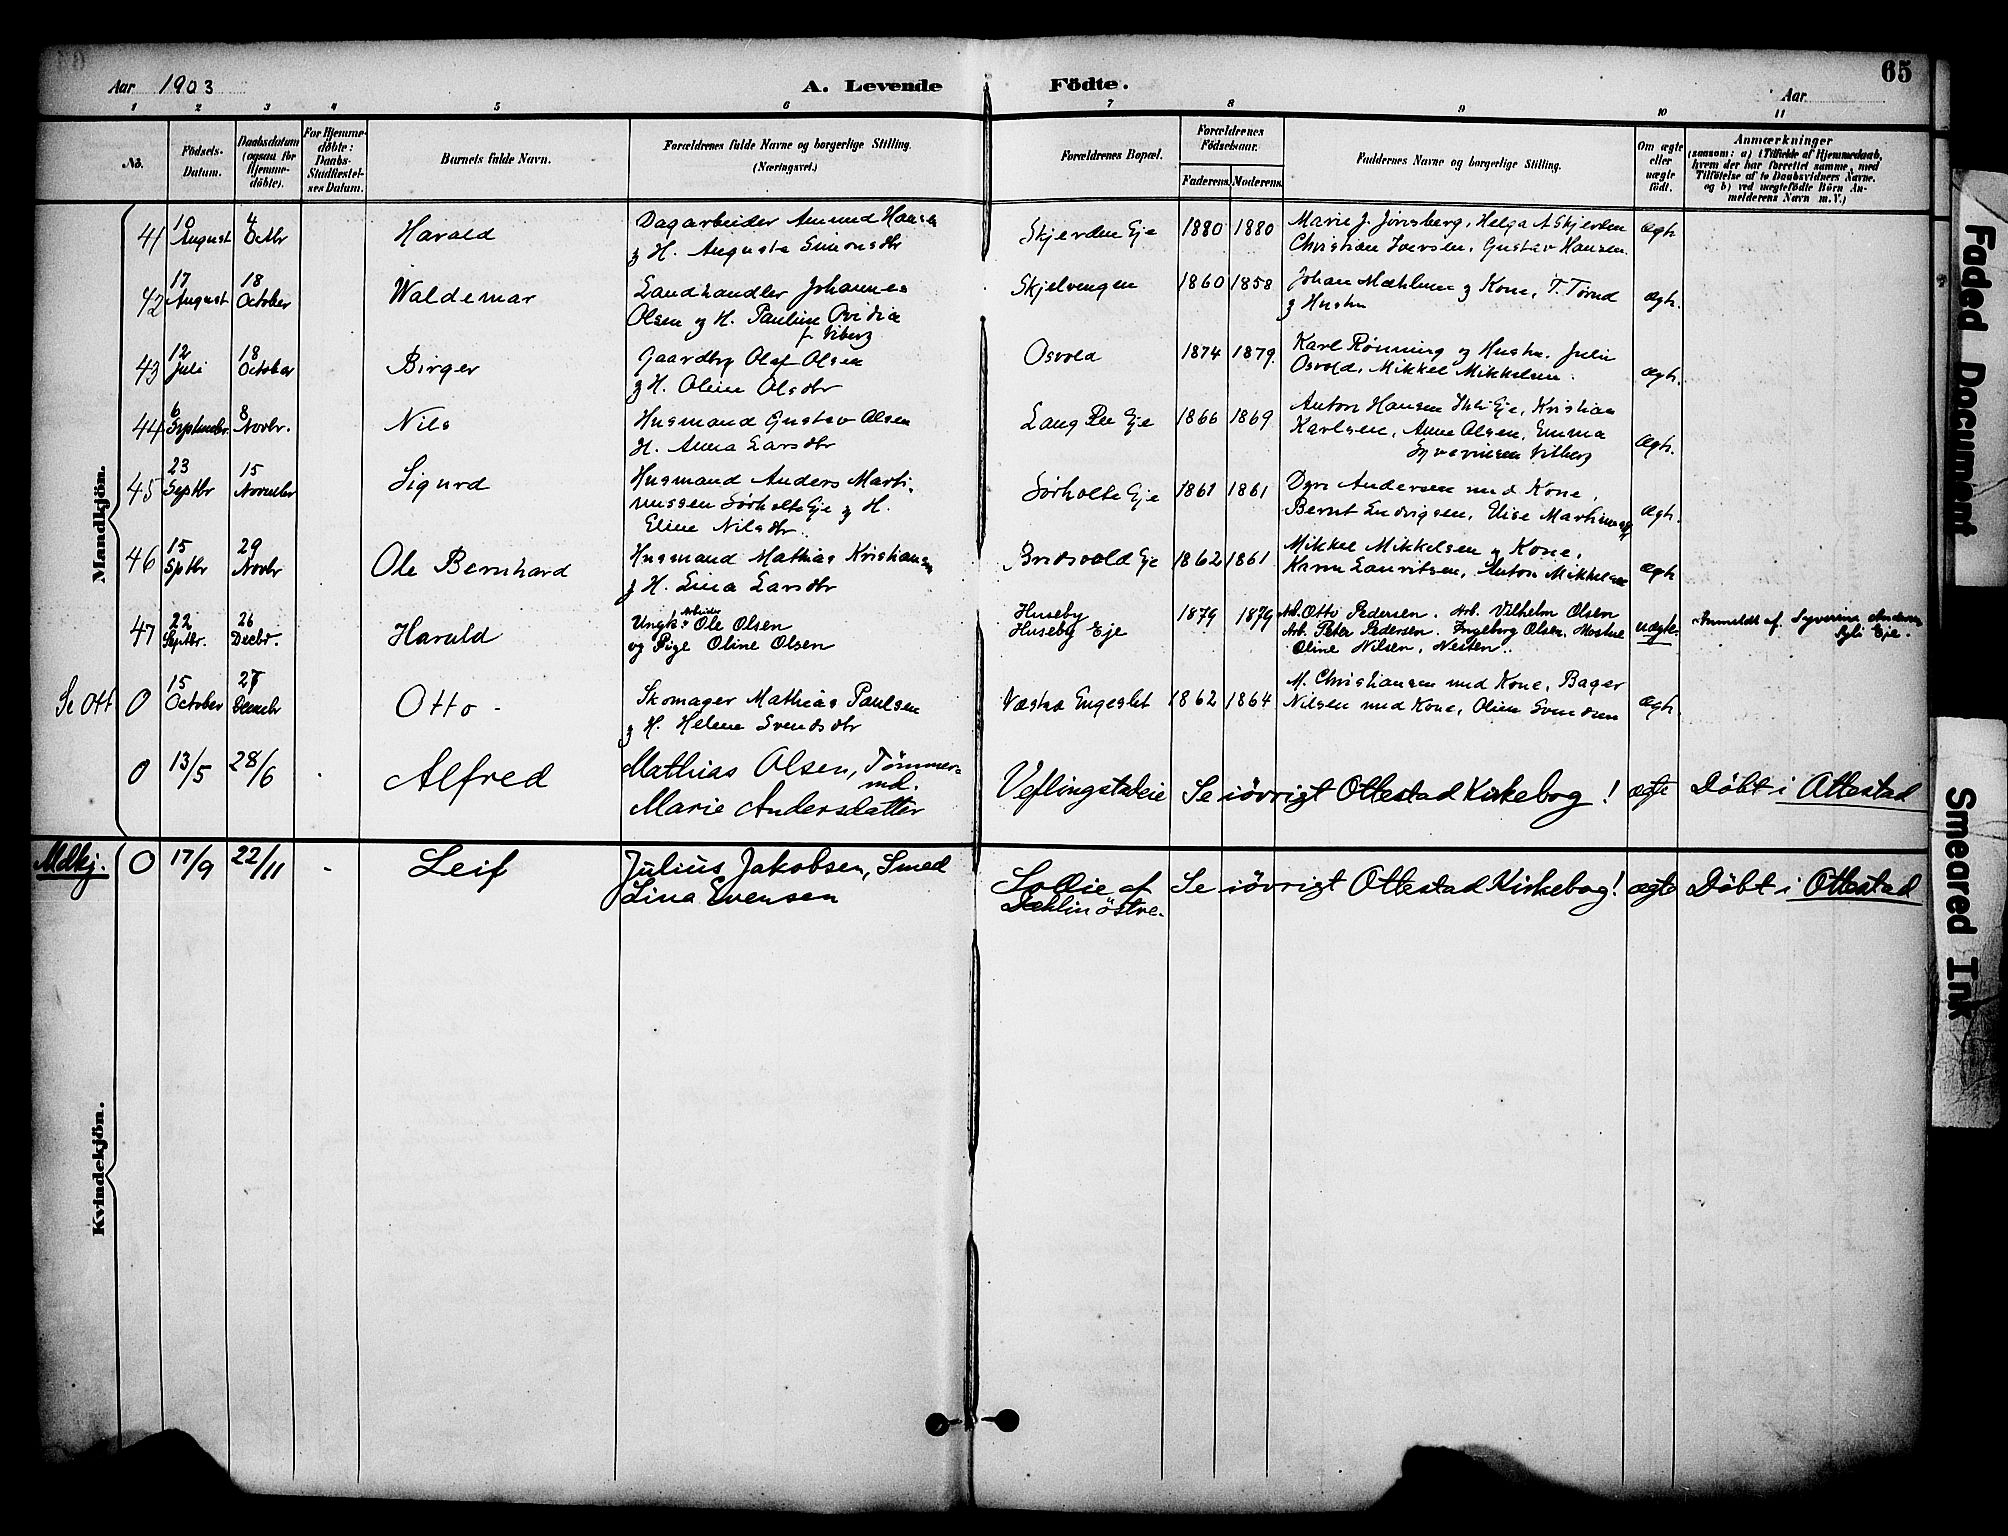 Aar 1903
A. Levende Födte.
65
Aar
1 2 3 4 5 6 7 8 9 10 11
No.
Födsels-Datum.
Daabsdatum (ogsaa for Hjemme-döbte).
For Hjemme-döbte: Daabs-Stadfæstel-ses Datum.
Barnets fulde Navn.
Forældrenes fulde Navne og borgerlige Stilling. (Næringsvei.)
Forældrenes Bopæl.
Forældrenes Födselsaar.
Faderens. Moderens.
Faddernes Navne og borgerlige Stilling.
Om ægte eller uægte födt.
Anmærkninger
(saasom: a) i Tilfælde af Hjemmedaab, hvem der har forrettet samme, med Tilföielse af to Daabsvidners Navne. og b) ved uægtefödte Börn An-melderens Navn m. V.)
Mandkjön.
41 10 August 4 Octbr Harald
Dagarbeider Amund Hansen
g H. Augusta Simonsdtr
Skjerden Eje 1880 1880
Marie J. Jønsberg, Helga A Skjerden
Christian Iversen, Gustav Hansen
Ægh
42 17 August 18 October Waldemar
Landhandler Johannes
Olsen og H. Pauline Ovidia
f. Viberg
Skjelvengen 1860 1858
Johan Mæhlum g Kone, T. Tørud
g Hustru
Ægh.
43 12 Juli 18 October Birger
Gaardbr Olaf Olsen
g H. Oline Olsdtr
Osvold 1874 1879
Karl Rønning og Hustru. Julie
Osvold, Mikkel Mikkelsen.
Ægh.
44 6 Septembr. 8 Novbr. Nils
Husmand Gustav Olsen
H. Anna Larsdtr
Eje 1866 1869
Anton Hansen Eje, Kristian
Karlsen, Anne Olsen, Emma
Syverinsen Vilberg
Ægh.
45 23 Septbr 15 Novembr Sigurd
Husmand Anders Marti-
nussen Sørholte Eje g H.
Eline Nilsdtr.
Sørholte Eje 1861 1861
Dyre Andersen med Kone,
Bernt Ludvigsen, Elise
Ægh.
46 15 Sptbr 29 Novbr Ole Bernhard
Husmand Mathias Kristiansen
g H. Lina Larsdtr
Eje 1862 1861
Mikkel Mikkelsen g Kone,
Karen Lauritsen, Anton Mikkelsen
Ægh
47 22 Septbr. 26 Decbr. Harald
Ungk. Arbeider Ole Olsen
og Pige Oline Olsen
Huseby
Huseby Eje 1879 1879
Arb. Otto Pedersen. Arb. Vilhelm Olsen
Arb. Peter Pedersen. Ingeborg Olsen,
Oline Nilsen, Nesten.
uægte.
Anmeldt af. Syverine Andersen
Eje.
Se Ott 0 15 October 27 Decembr Otto -
Skomager Mathias Paulsen
g H. Helene Svendsdtr
Væstre Engeslet 1862 1864
M. Christiansen med Kone, Bager
Nilsen med Kone, Oline Svendsen
Ægh
0 13/5 28/6 . Alfred
Mathias Olsen, Tömmer-
md.
Marie Andersdatter
Veflingstadeie
Se iövrigt Ottestad Kirkebog!
ægte
Döbt i Ottestad
Mdkj.
0 17/9 22/11 - Leif
Julius Jakobsen, Smed
Lina Evensen
af
Dæhlin östre.
Se iövrigt Ottestad Kirkebog!
ægte
Döbt i Ottestad
Kvindekjön.
Faded Document
Smeared Ink